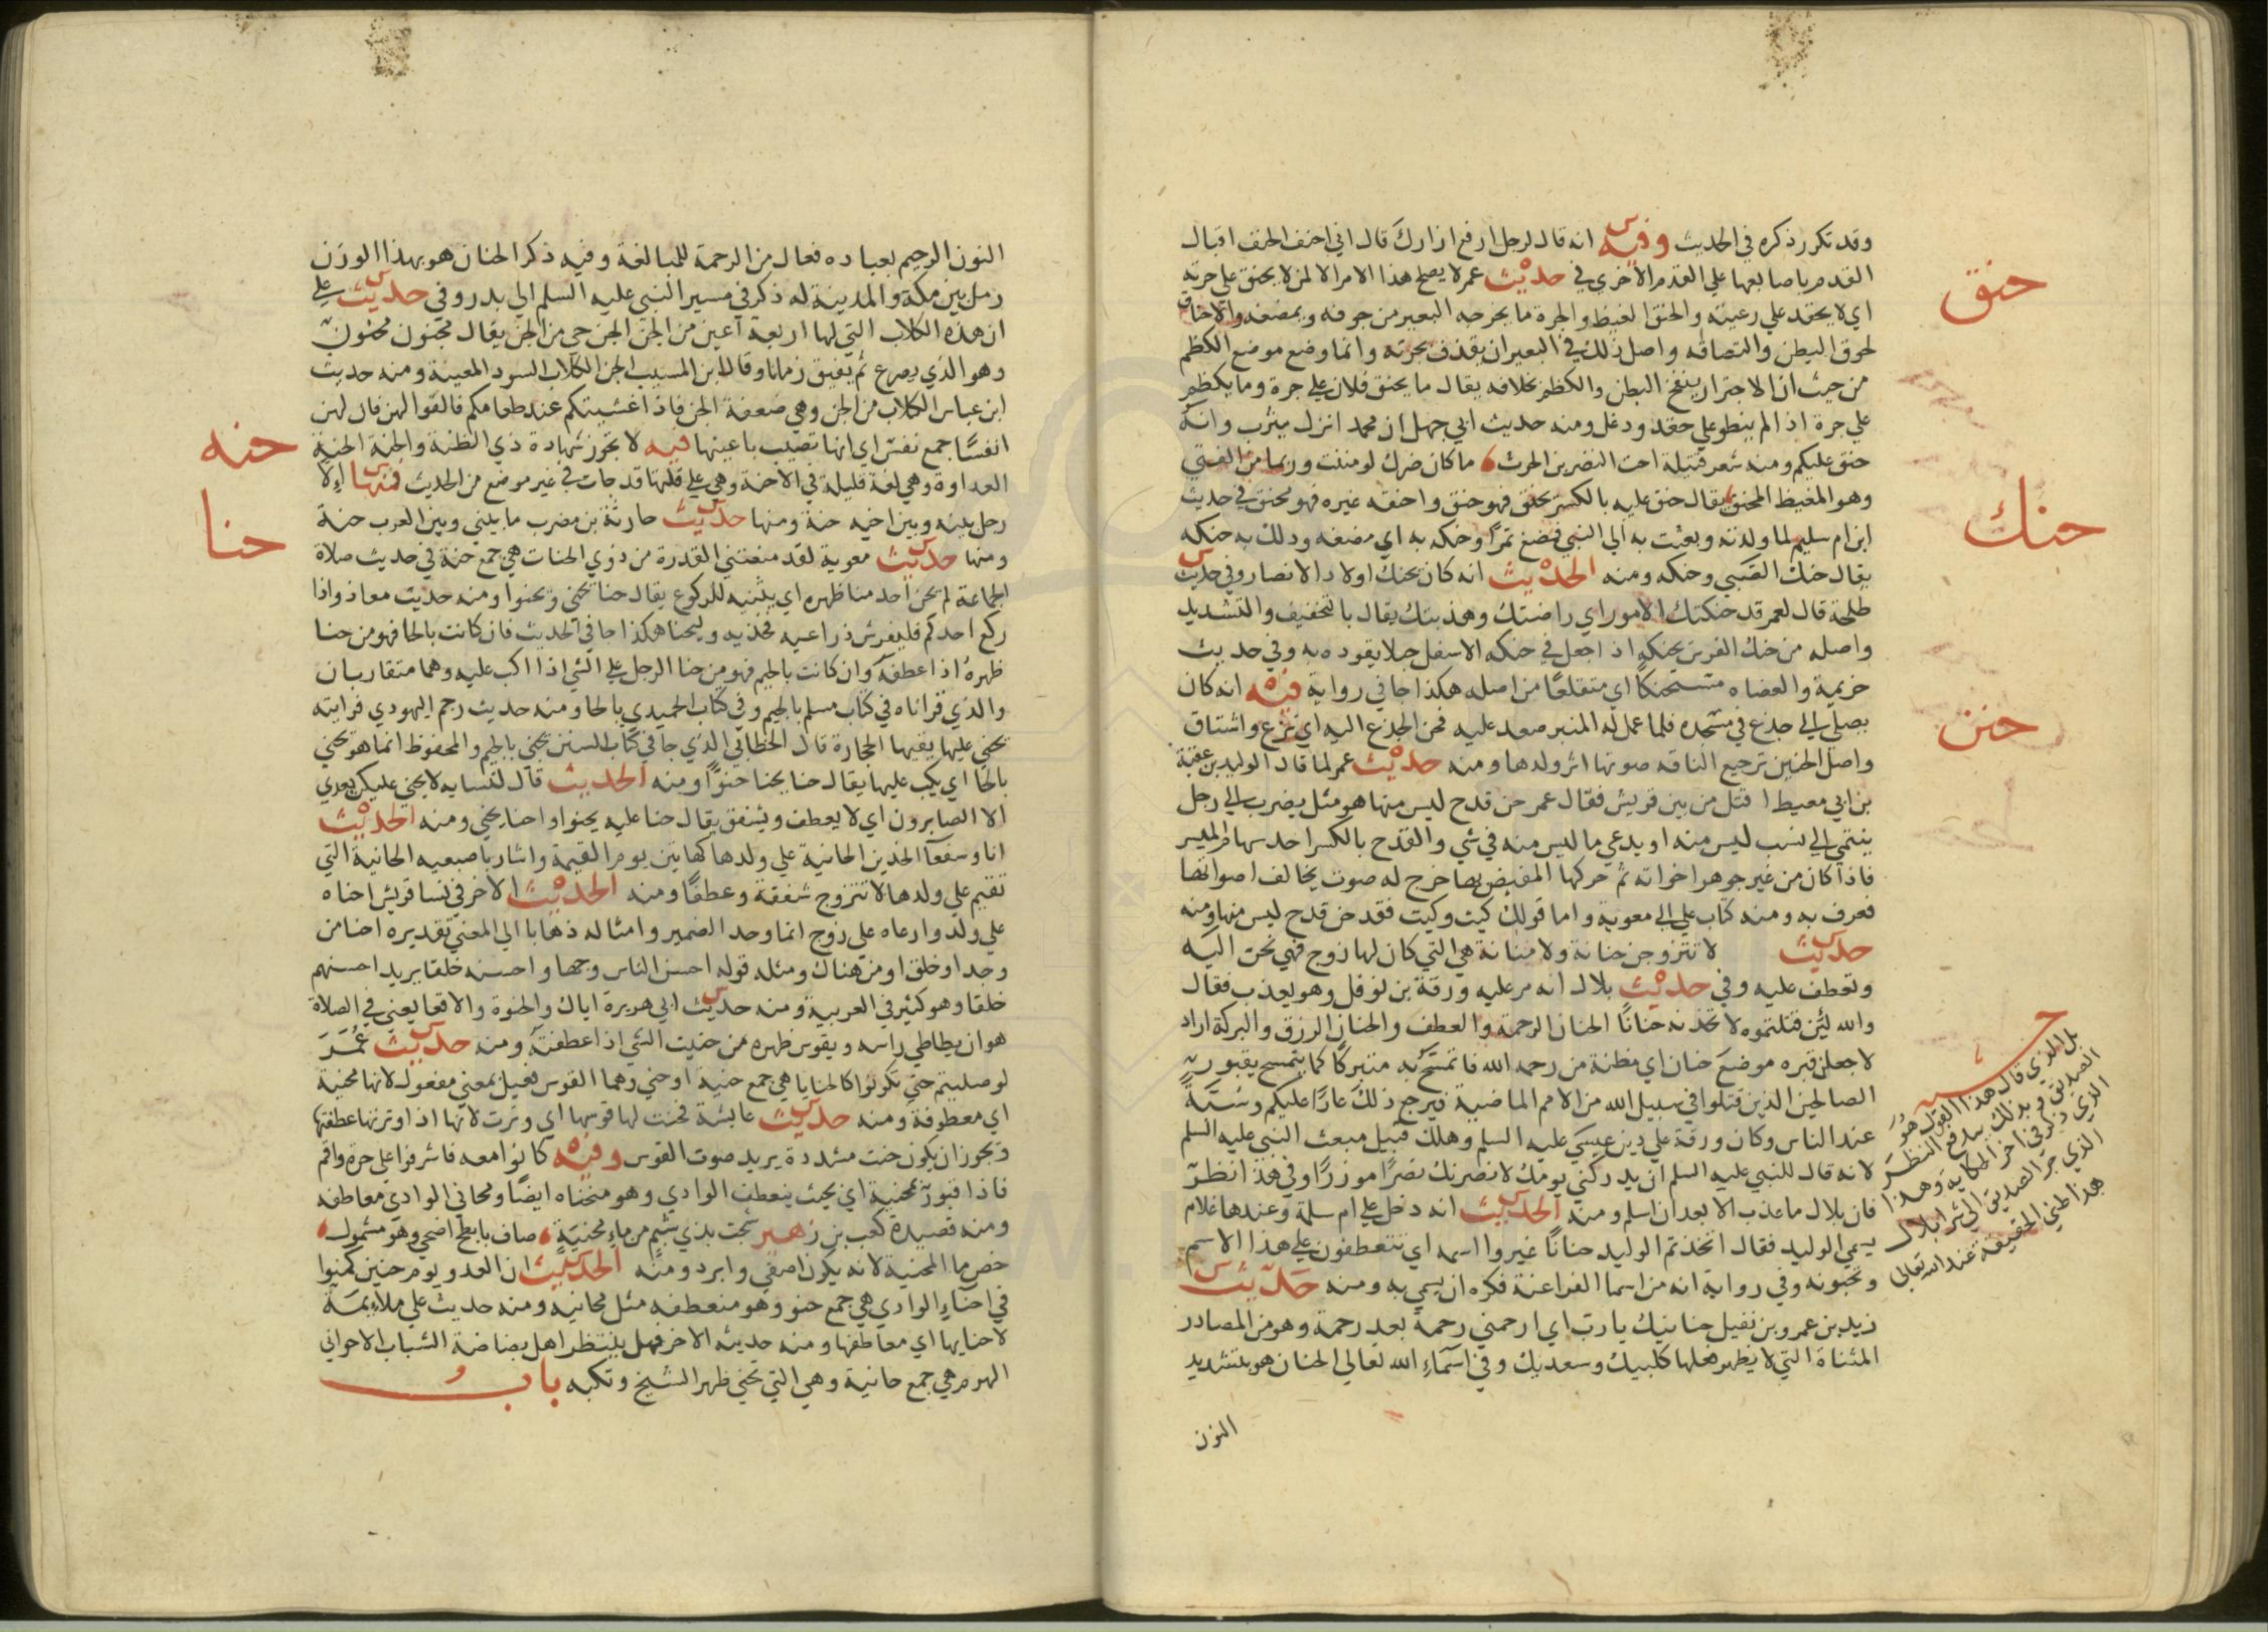 وقد تكرر ذكره في الحديث وفيه انه قال لرجل ارفع ازارك قال اني احنف الحنف اقبال
القدم باصابعها علي القدم الاخري في حديث عمر لا يصلح هذا الامر الا لمن لا يحنق علي جرته
اي لا يحقد علي رعيته والحنق الغيظ والجرة ما يخرجه البعير من جوفه ويمضغه والاحناق
لحوق البطن والتصاقه واصل ذلك في البعير ان يقذف بجرته وانما وضع موضع الكظم
من حيث ان الاجترار ينفخ البطن والكظم بخلافه يقال ما يحنق فلان علي جرة وما يكظم
علي جرة اذا لم ينطو علي حقد ودغل ومنه حديث ابي جهل ان محمد انزل يثرب وانه
حنق عليكم ومنه شعر قتيلة اخت النضر بن الحرث ما كان ضرك لو مننت وربما من الفتي
وهو المغيظ المحنق يقال حنق عليه بالكسر يحنق فهو حنق واحنقه غيره فهو محنق في حديث
ابن ام سليم لما ولدته وبعثت به الي النبي فمضغ تمرا وحنكه به اي مضغه ودلك به حنكه
يقال حنك الصبي وحنكه ومنه الحديث انه كان يحنك اولاد الانصار وفي حديث
طلحة قال لعمر قد حنكتك الامور اي راضتك وهذبتك يقال بالتخفيف والتشديد
واصله من حنك الفرس يحنكه اذا جعل في حنكه الاسفل حبلا يقوده به وفي حديث
خزيمة والعضاه مستحنكا اي متقلعا من اصله هكذا جا في رواية فيه انه كان
يصلي الي جذع في مسجده فلما عمل له المنبر صعد عليه فحن الجذع اليه اي نزع واشتاق
واصل الحنين ترجيع الناقه صوتها اثر ولدها ومنه حديث عمر لما قال الوليد بن عقبة
بن ابي معيط اقتل من بين قريش فقال عمر حن قدح ليس منها هو مثل يضرب الي رجل
ينتمي الي نسب ليس منه او يدعي ما ليس منه في شي والقدح بالكسر احد سهام الميسر
فاذا كان من غير جوهر اخواته ثم حركها المفيض بها خرج له صوت يخالف اصواتها
فعرف به ومنه كتاب علي الي معوية واما قولك كيت وكيت فقد حن قدح ليس منها ومنه
حديث لا تتزوجن حنانة ولا منانة هي التي كان لها زوج فهي تحن اليه
وتعطف عليه وفي حديث بلال انه مر عليه ورقة بن نوفل وهو يعذب فقال
والله لئن قتلتموه لاتخذنه حنانا الحنان الرحمة والعطف والحنان الرزق والبركة اراد
لاجعلن قبره موضع حنان اي مظنة من رحمه الله فاتمسح به متبركا كما يتمسح بقبور
الصالحين الذين قتلوا في سبيل الله من الامم الماضية فيرجع ذلك عارا عليكم وسبة
عند الناس وكان ورقة علي دين عيسي عليه السلم وهلك قبيل مبعث النبي عليه السلم
لانه قال للنبي عليه السلم ان يدركني يومك لانصرنك نصرا موزرا وفي هذا نظر
فان بلال ما عذب الا بعد ان اسلم ومنه الحديث انه دخل علي ام سلمة وعندها غلام
يسمي الوليد فقال اتخذتم الوليد حنانا غيروا اسمه اي تتعطفون علي هذا الاسم
وتحبونه وفي رواية انه من اسما الفراعنة فكره ان يسمي به ومنه حديث
زيد بن عمرو بن نفيل حنانيك يا رب اي ارحمني رحمة بعد رحمة وهو من المصادر
المثناة التي لا يظهر فعلها كلبيك وسعديك وفي اسماء الله تعالي الحنان هو بتشديد
النون
حنق
حنك
حنن
بل الذي قال هذا القول هو
الصديق وبذلك يندفع النظر
الذي ذكر في اخر الحكايه وهذا
الذي جر الصديق الي شرا بلال
هذا ظني الحقيقة عند الله تعالي
النون الرحيم بعباده فعال من الرحمة للمبالغة وفيه ذكر الحنان هو بهذا الوزن
رمل بين مكة والمدينة له ذكر في مسير النبي عليه السلم الي بدر وفي حديث علي
ان هذه الكلاب التي لها اربعة اعين من الجن الحن حي من الجن يقال مجنون محنون
وهو الذي يصرع ثم يفيق زمانا وقال ابن المسيب الحن الكلاب السود المعينة ومنه حديث
ابن عباس الكلاب من الحن وهي ضعفة الجن فاذا غشيتكم عند طعامكم فالقوا لهن فان لهن
انفسا جمع نفس اي انها تصيب باعينها فيه لا تجوز شهادة ذي الظنة والحنة الحنة
العداوة وهي لغة قليلة في الاحنة وهي علي قلتها قد جات في غير موضع من الحديث فمنها الا
رجل بينه وبين اخيه حنة ومنها حديث حارثة بن مضرب ما بيني وبين العرب حنة
ومنها حديث معوية لقد منعتني القدرة من ذوي الحنات هي جمع حنة في حديث صلاة
الجماعة لم يحن احد منا ظهره اي يثنيه للركوع يقال حنا يحني ويحنوا ومنه حديث معاذ واذا
ركع احدكم فليفرش ذراعيه فخذيه وليحنا هكذا جا في الحديث فان كانت بالحا فهو من حنا
ظهره اذا عطفه وان كانت بالجيم فهو من جنا الرجل علي الشي اذا اكب عليه وهما متقاربان
والذي قراناه في كتاب مسلم بالجيم وفي كتاب الحميدي بالحا ومنه حديث رجم اليهودي فرايته
يحني عليها يقيها الحجارة قال الخطابي الذي جا في كتاب السنن يجني بالجيم والمحفوظ انما هو يحني
بالحا اي يكب عليها يقال حنا يحنا حنوا ومنه الحديث قال لنسايه لا يحني عليكن بعدي
الا الصابرون اي لا يعطف ويشفق يقال حنا عليه يحنوا واحنا يحني ومنه الحديث
انا وسفعا الخدين الحانية علي ولدها كهاتين يوم القيمة واشار باصبعيه الحانية التي
تقيم علي ولدها لا تتزوج شفقة وعطفا ومنه الحديث الاخر في نسا قريش احناه
علي ولد وارعاه علي زوج انما وحد الضمير وامثاله ذهابا الي المعني تقديره احنا من
وجد او خلق او من هناك ومثله قوله احسن الناس وجها واحسنه خلقا يريد احسنهم
خلقا وهو كثير في العربية ومنه حديث ابي هريرة اياك والحنوة والاقعا يعني في الصلاة
هو ان يطاطي راسه ويقوس ظهره من حنيت الشي اذا عطفته ومنه حديث عمر
لو صليتم حتي تكونوا كالحنايا هي جمع حنية او حني وهما القوس فعيل بمعني مفعول لانها محنية
اي معطوفة ومنه حديث عايشة فحنت لها قوسها اي وترت لانها اذا وترتها عطفتها
وتجوز ان يكون حنت مشددة يريد صوت القوس وفيه كانوا معه فاشرفوا علي حرة واقم
فاذا قبور بمحنية اي بحيث ينعطف الوادي وهو منحناه ايضا ومحاني الوادي معاطفه
ومنه قصيدة كعب بن زهير شجت بذي شبم من ماء محنية صاف بابطح اضحي وهو مشمول
خص ما المحنية لانه يكون اصفي وابرد ومنه الحديث ان العدو يوم حنين كمنوا
في احناء الوادي هي جمع حنو وهو منعطفه مثل محانيه ومنه حديث علي ملاءمة
لاحنايها اي معاطفها ومنه حديثه الاخر فهل ينتظر اهل بضاضة الشباب الا حواني
الهرم هي جمع حانية وهي التي تحني ظهر الشيخ وتكبه باب
حنه
حنا